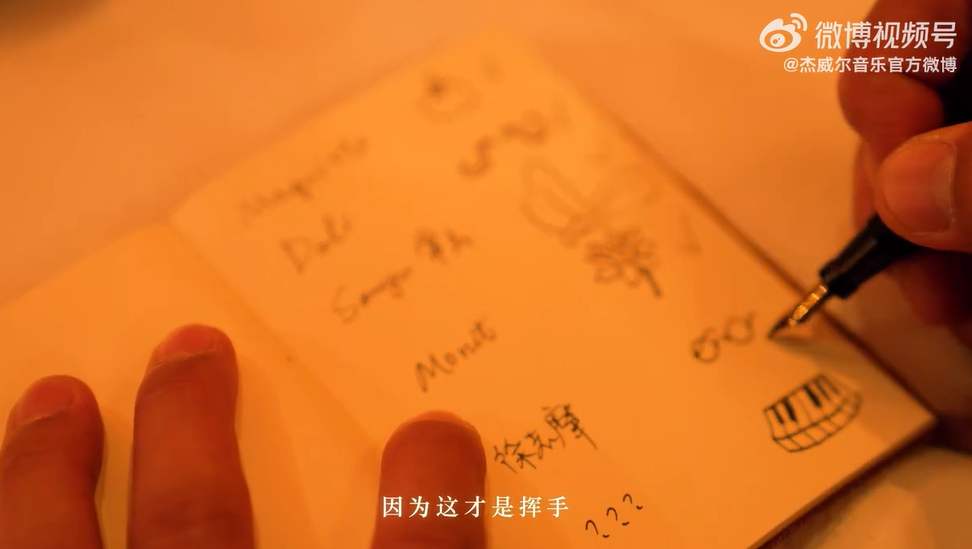 微博视频号
@杰威尔音乐官方微博
Magritte
Dali
Sanyu 常玉
Monet
徐志摩
???
因为这才是挥手